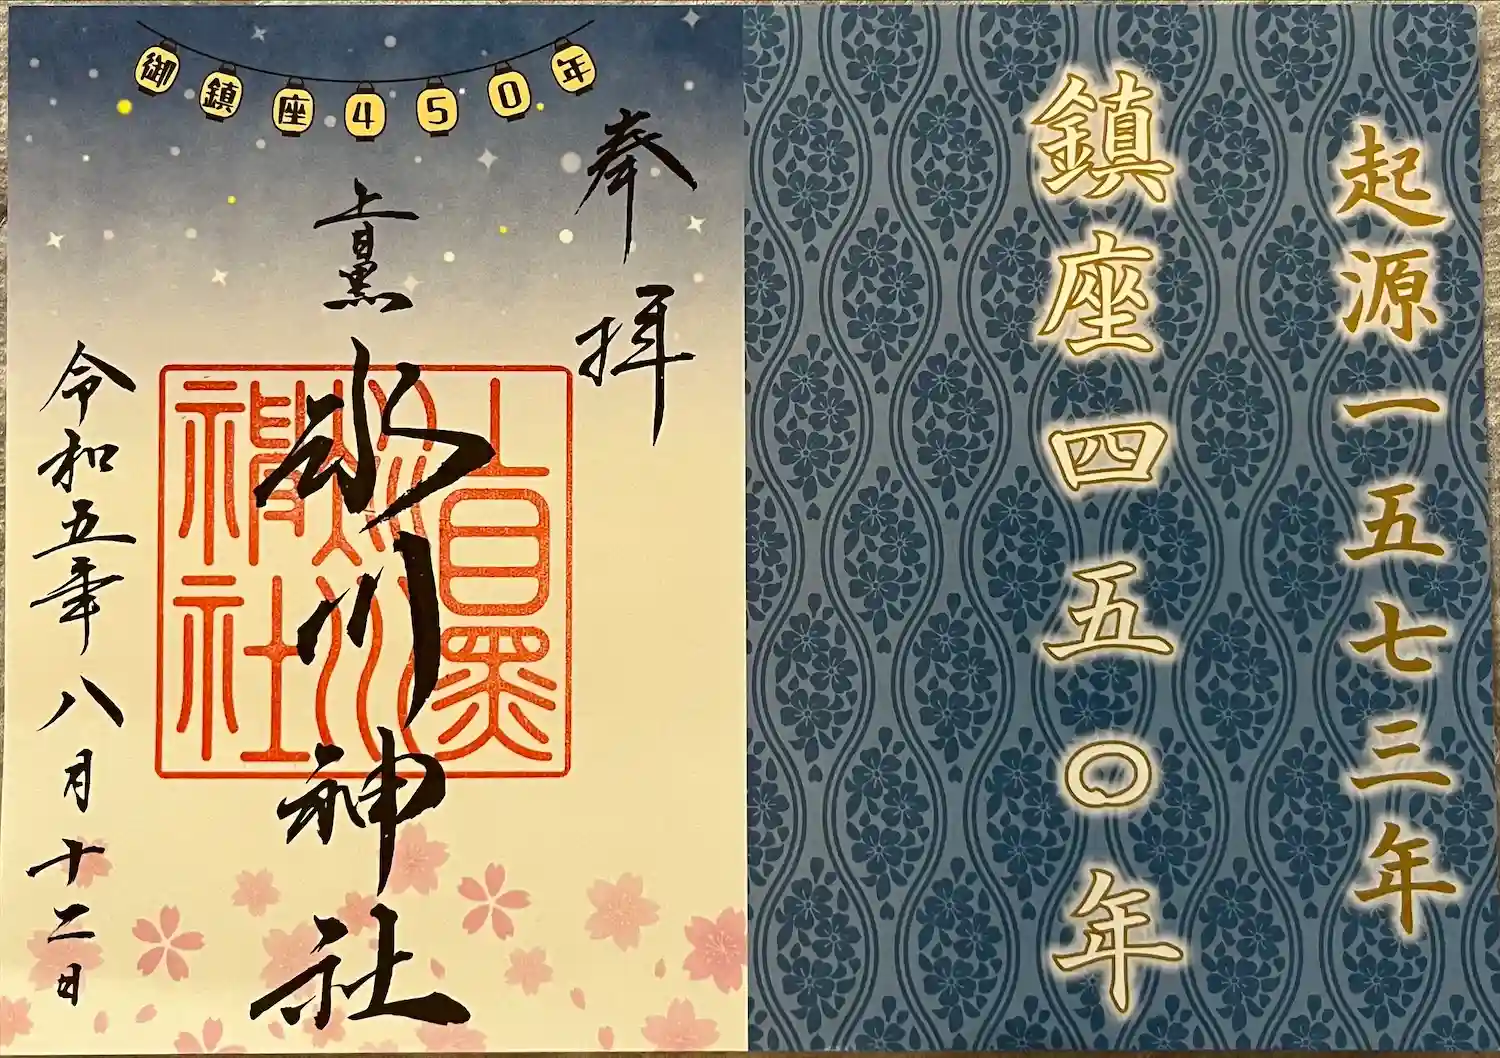 起源一五七三年
鎮座四五〇年
御鎮座450年
奉拝
上目黒
氷川神社
令和五年八月十二日
上目黒
氷川
神社